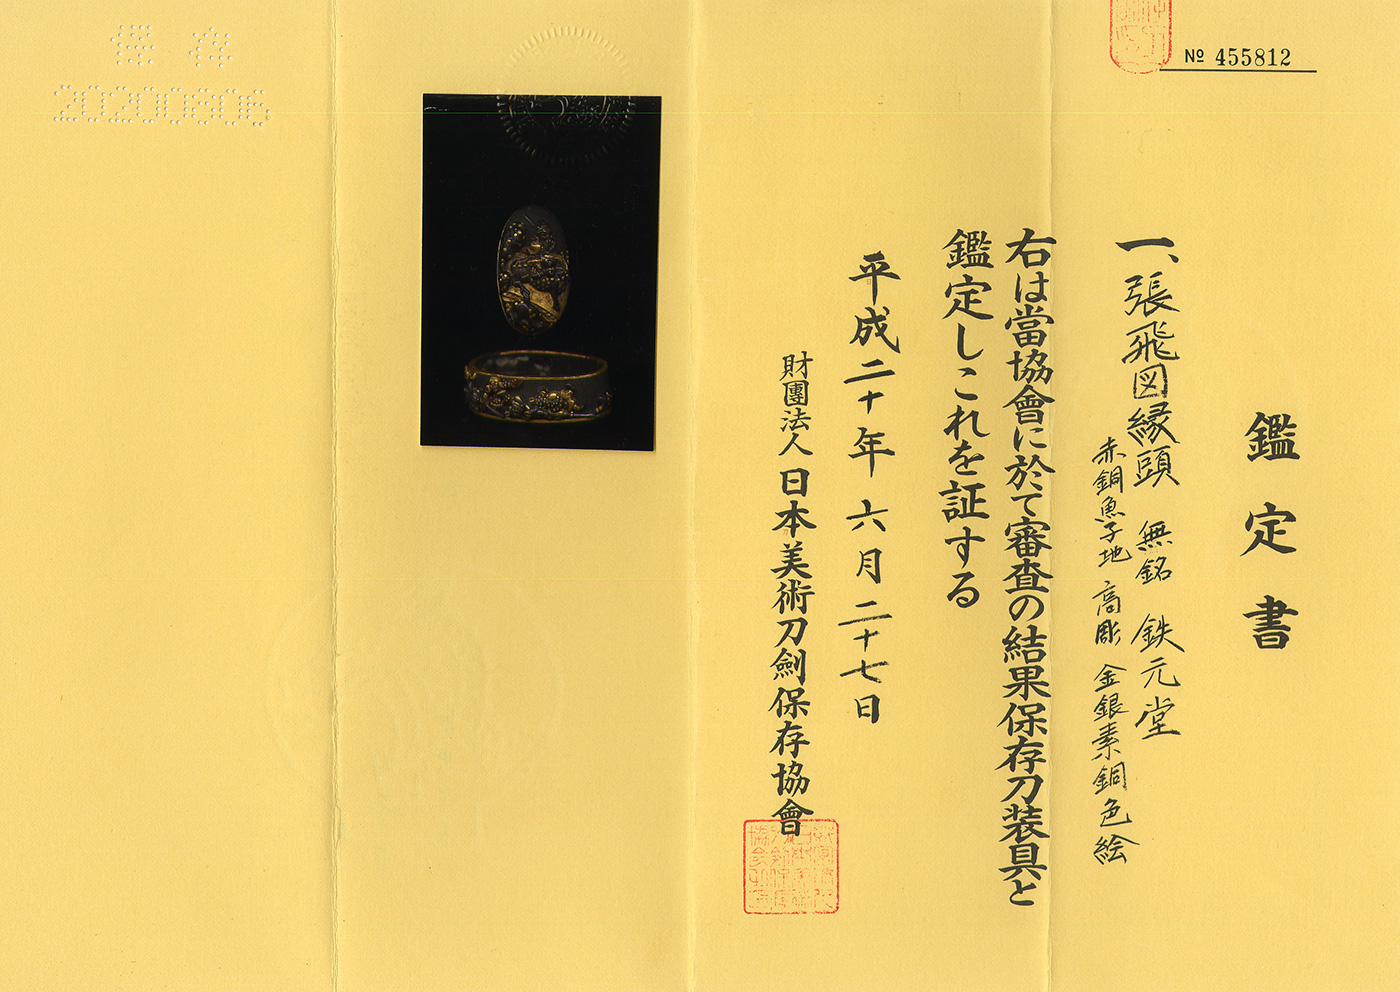 № 455812
鑑定書
一、張飛図縁頭 無銘 鉄元堂
赤銅魚子地 高彫 金銀素銅色絵
右は當協會に於て審査の結果保存刀装具と
鑑定しこれを証する
平成二十年 六月 二十七日
財團法人 日本美術刀劍保存協會
保存
20200606